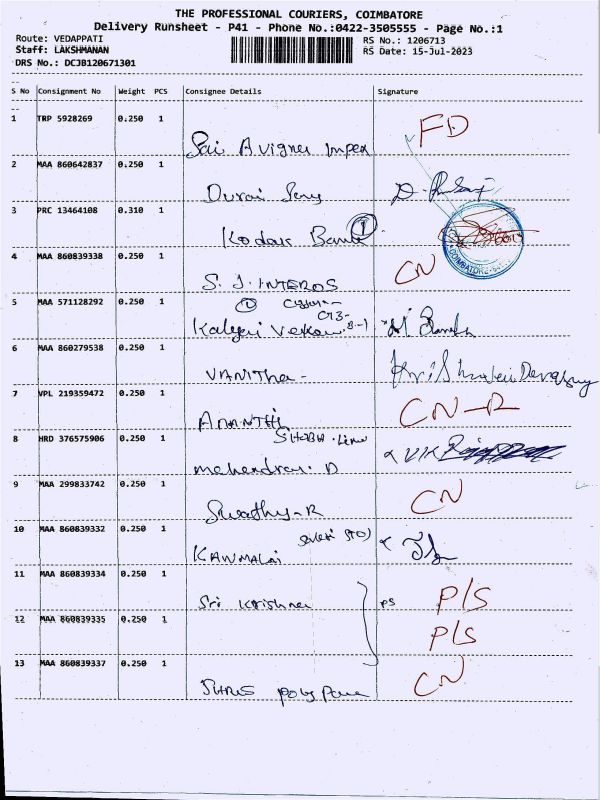 THE PROFESSIONAL COURIERS, COIMBATORE
Delivery Runsheet - P41 - Phone No.:0422-3505555 - Page No.:1
Route: VEDAPPATI
RS No.: 1206713
Staff: LAKSHMANAN
RS Date: 15-Jul-2023
DRS No.: DCJB120671301
S No Consignment No Weight PCS Consignee Details Signature
1 TRP 5928269 0.250 1
Sai Avigna Impex FD
2 MAA 860642837 0.250 1
Durai
3 PRC 13464108 0.310 1
1
Bank
COIMBATORE
4 MAA 860839338 0.250 1
S. J. INTEROS CN
5 MAA 571128292 0.250 1
6 MAA 860279538 0.250 1
VANITha -
7 VPL 219359472 0.250 1
ANANTHI CN-R
8 HRD 376575906 0.250 1
Mahendran. D
9 MAA 299833742 0.250 1
Swathy-R CN
10 MAA 860839332 0.250 1
KANMALAI
11 MAA 860839334 0.250 1
Sri Krishna PS P/S
12 MAA 860839335 0.250 1
P/S
13 MAA 860839337 0.250 1
CN